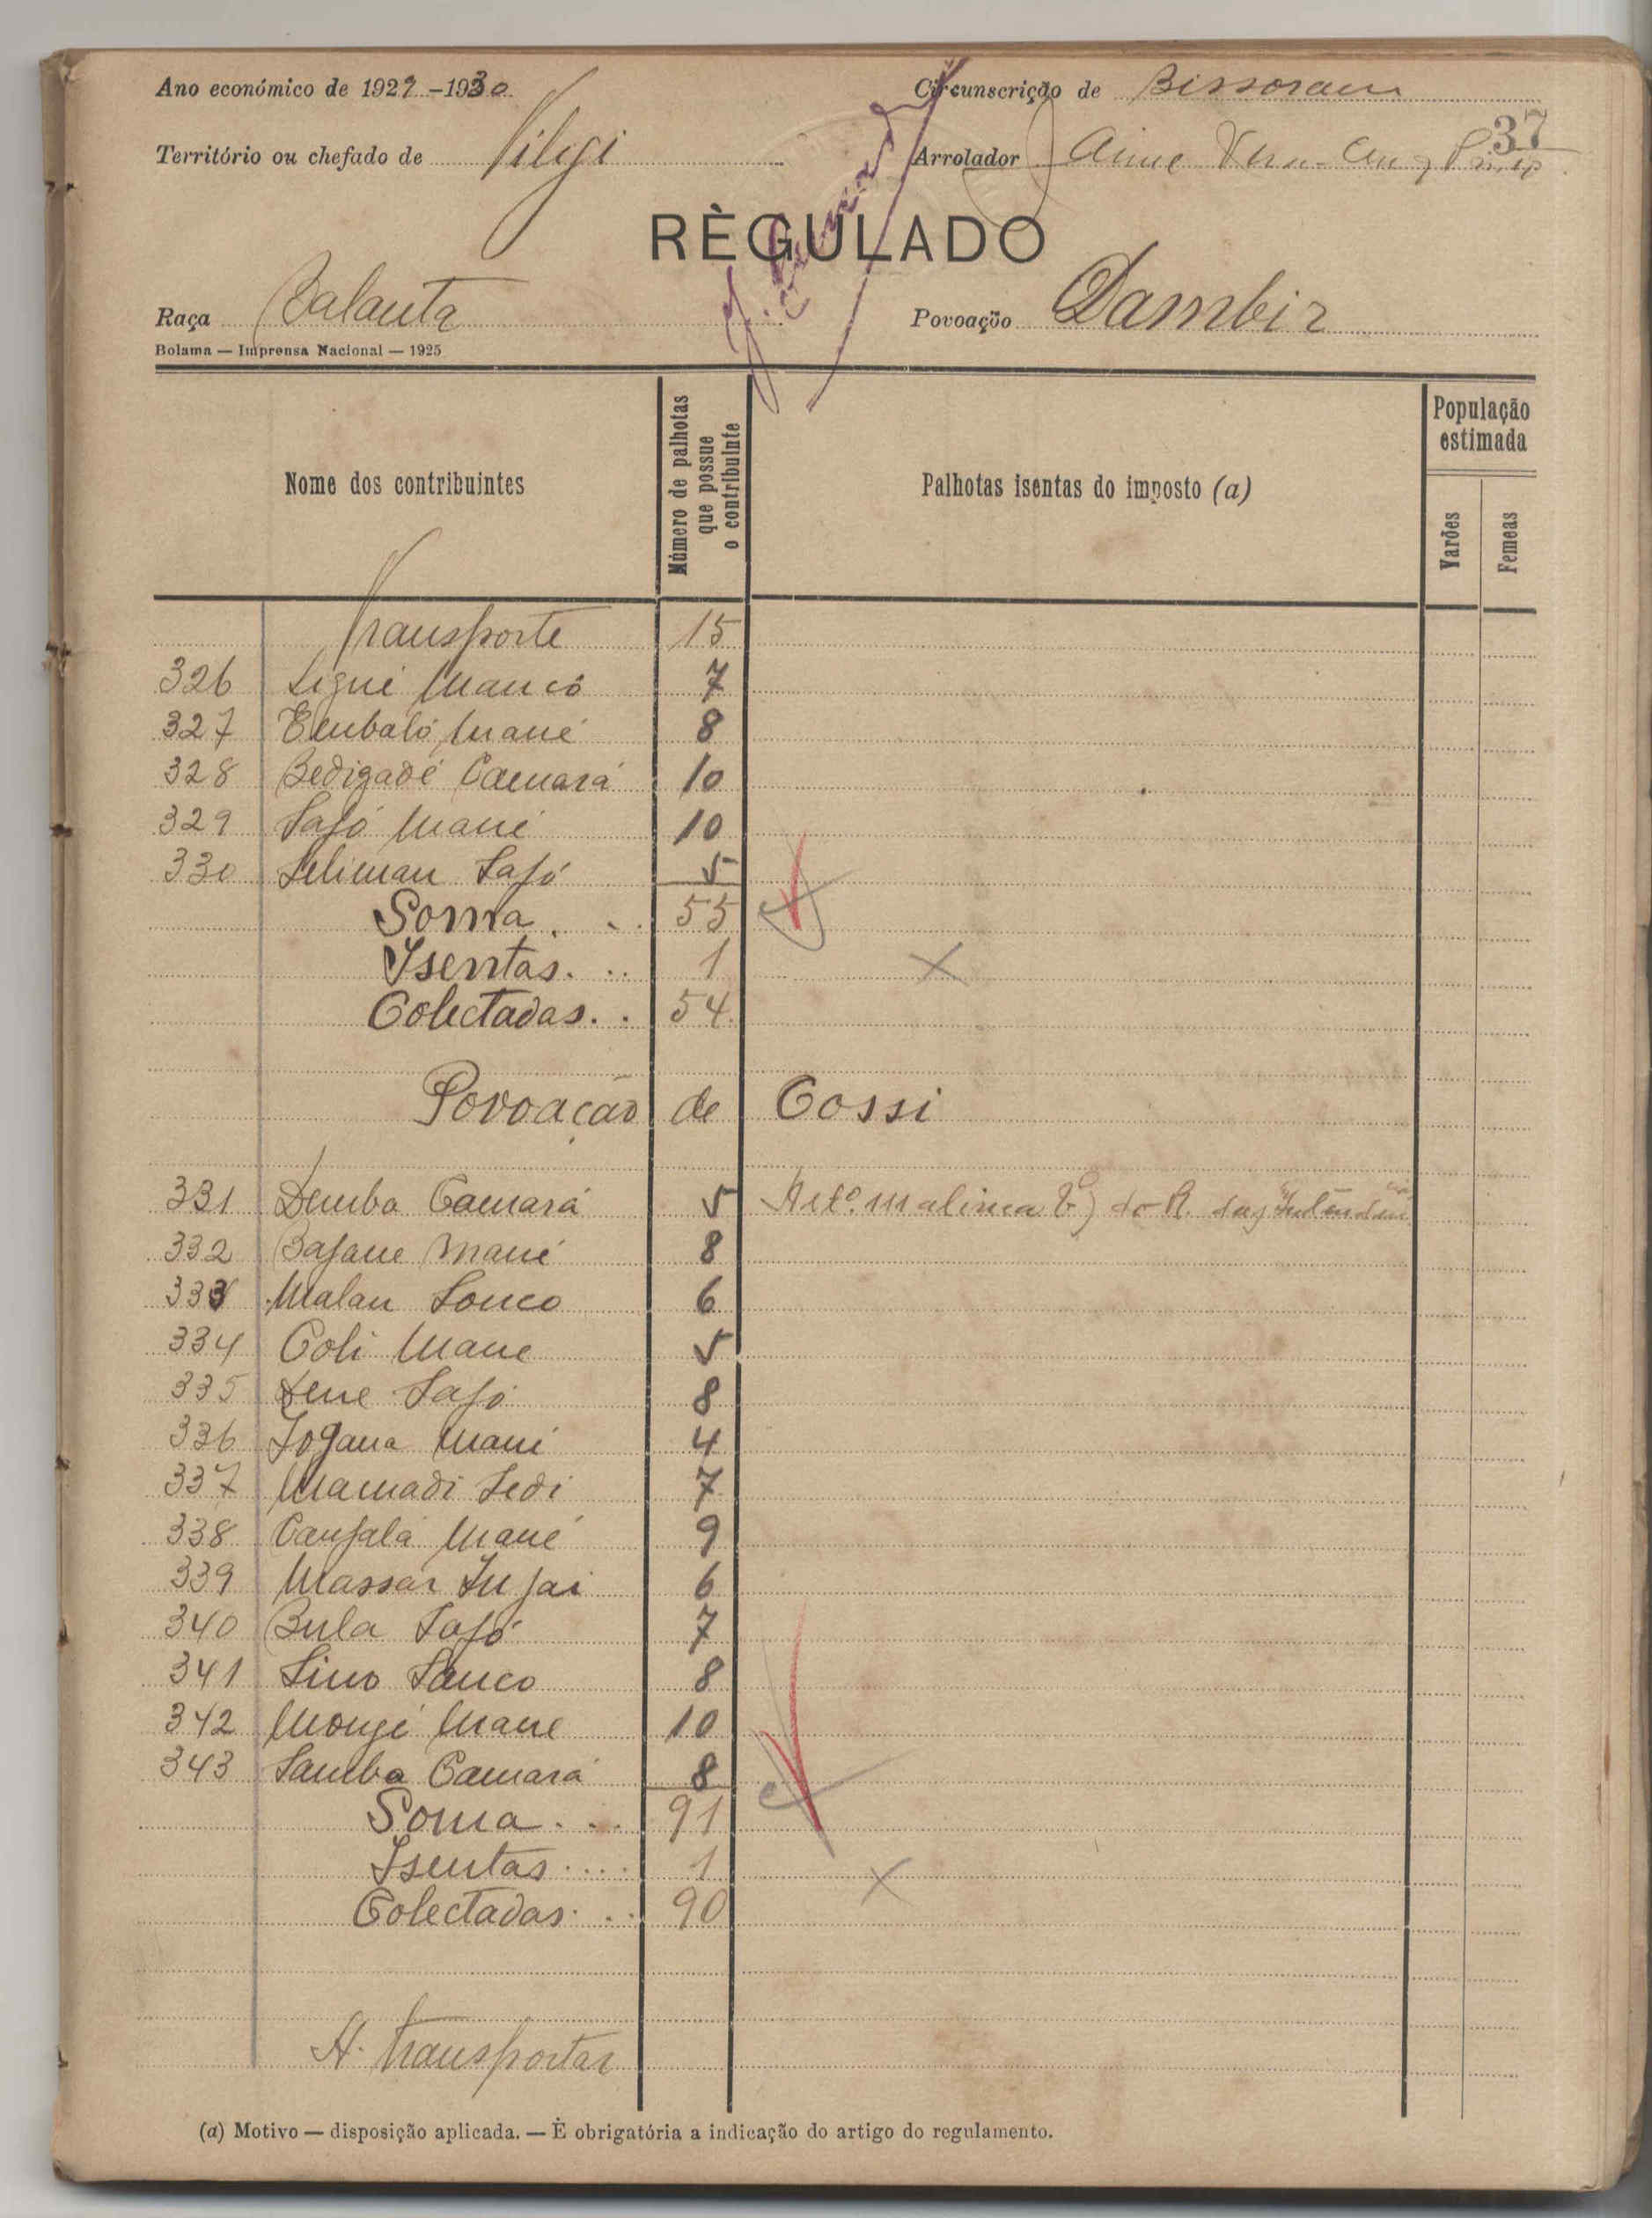 Ano económico de 1929-1930 Circunscrição de Bissoram
37
Território ou chefado de Arrolador
RÈGULADO
Raça Balanta Povoação Dambir
Bolama — Imprensa Nacional — 1925
Nome dos contribuintes Número de palhotas que possue o contribuinte Palhotas isentas do imposto (a) População estimada Varões Femeas
Transporte 15
326 Mancó 7
327 Embaló Mané 8
328 Bedigadé Camará 10
329 Safó Mané 10
330 Seliman Safó 5
Soma . . 55
Isentas. .. 1
Colectadas. . 54
Povoação de Cossi
331 Demba Camará 5
332 Bafane Mané 8
333 Malan Sonco 6
334 Coli Mane 5
335 Safó 8
336 Mané 4
337 Mamadi Sedi 7
338 Canfala Mané 9
339 Massar 6
340 Bula Safó 7
341 Sino Sanco 8
342 Mané 10
343 Samba Camará 8
Soma. .. 91
Isentas .... 1
Colectadas. .. 90
A transportar
(a) Motivo — disposição aplicada. — È obrigatória a indicação do artigo do regulamento.